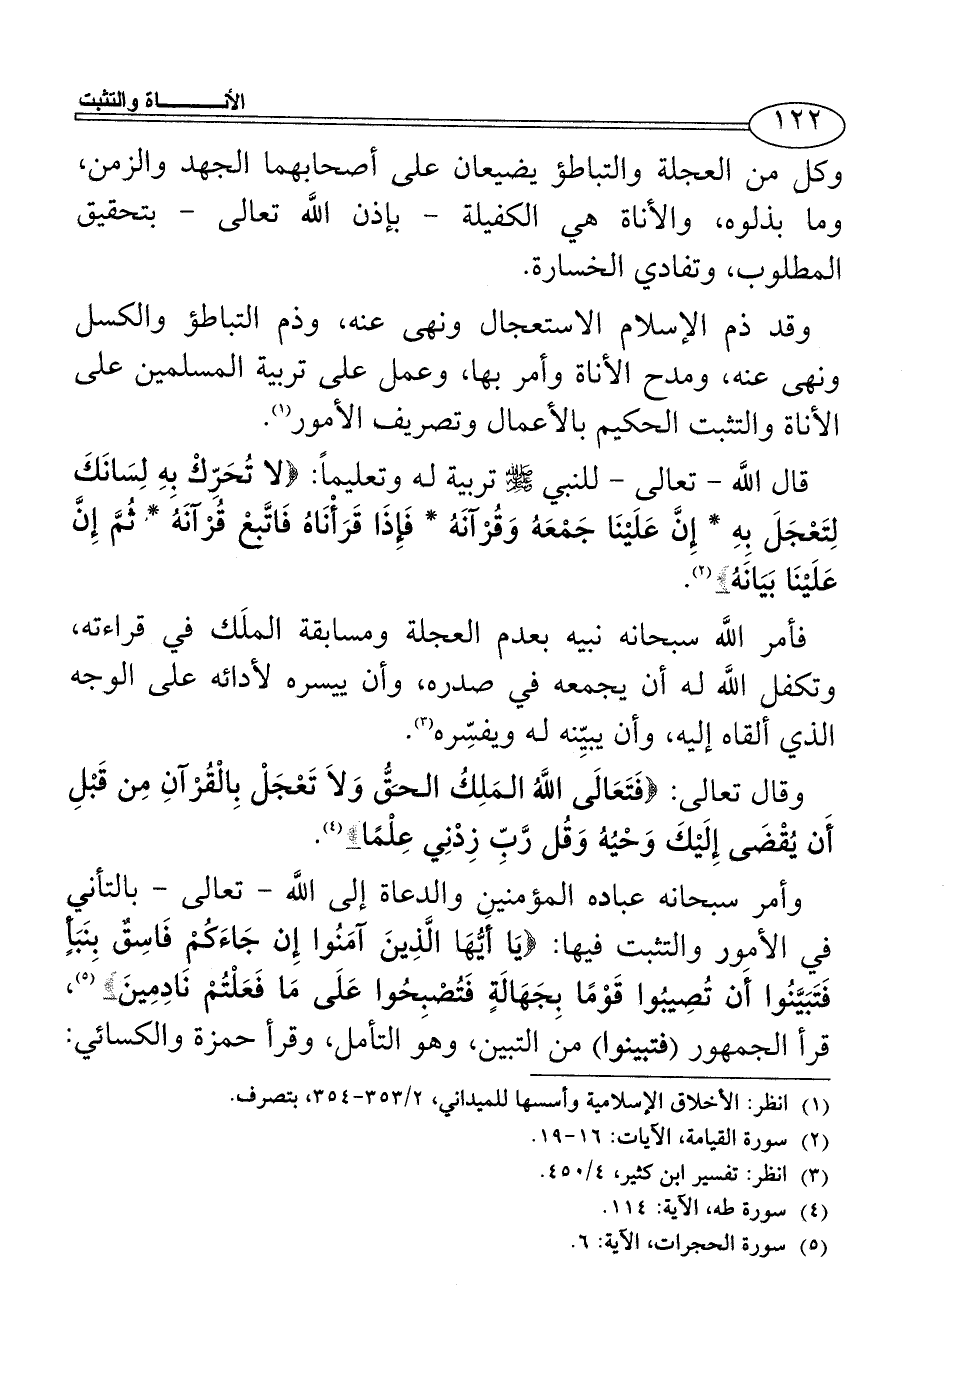 الأنـــــــاة والتثبت
١٢٢
وكل من العجلة والتباطؤ يضيعان على أصحابهما الجهد والزمن،
وما بذلوه، والأناة هي الكفيلة - بإذن الله تعالى - بتحقيق
المطلوب، وتفادي الخسارة.
وقد ذم الإسلام الاستعجال ونهى عنه، وذم التباطؤ والكسل
ونهى عنه، ومدح الأناة وأمر بها، وعمل على تربية المسلمين على
الأناة والتثبت الحكيم بالأعمال وتصريف الأمور(١).
قال الله - تعالى - للنبي ﷺ تربية له وتعليماً: ﴿لا تُحَرِّكْ بِهِ لِسَانَكَ
لِتَعْجَلَ بِهِ * إِنَّ عَلَيْنَا جَمْعَهُ وَقُرْآنَهُ * فَإِذَا قَرَأْنَاهُ فَاتَّبِعْ قُرْآنَهُ * ثُمَّ إِنَّ
عَلَيْنَا بَيَانَهُ﴾(٢).
فأمر الله سبحانه نبيه بعدم العجلة ومسابقة الملَك في قراءته،
وتكفل الله له أن يجمعه في صدره، وأن ييسره لأدائه على الوجه
الذي ألقاه إليه، وأن يبيِّنه له ويفسِّره(٣).
وقال تعالى: ﴿فَتَعَالَى اللهُ الـمَلِكُ الـحقُّ وَلاَ تَعْجَلْ بِالْقُرْآنِ مِن قَبْلِ
أَن يُقْضَى إِلَيْكَ وَحْيُهُ وَقُل رَّبِّ زِدْنِي عِلْمًا﴾(٤).
وأمر سبحانه عباده المؤمنين والدعاة إلى الله - تعالى - بالتأني
في الأمور والتثبت فيها: ﴿يَا أَيُّهَا الَّذِينَ آمَنُوا إِن جَاءَكُمْ فَاسِقٌ بِنَبَأٍ
فَتَبَيَّنُوا أَن تُصِيبُوا قَوْمًا بِجَهَالَةٍ فَتُصْبِحُوا عَلَى مَا فَعَلْتُمْ نَادِمِينَ﴾(٥)،
قرأ الجمهور (فتبينوا) من التبين، وهو التأمل، وقرأ حمزة والكسائي:
(١) انظر: الأخلاق الإسلامية وأسسها للميداني، ٣٥٣/٢-٣٥٤، بتصرف.
(٢) سورة القيامة، الآيات: ١٦-١٩.
(٣) انظر: تفسير ابن كثير، ٤٥٠/٤.
(٤) سورة طه، الآية: ١١٤.
(٥) سورة الحجرات، الآية: ٦.